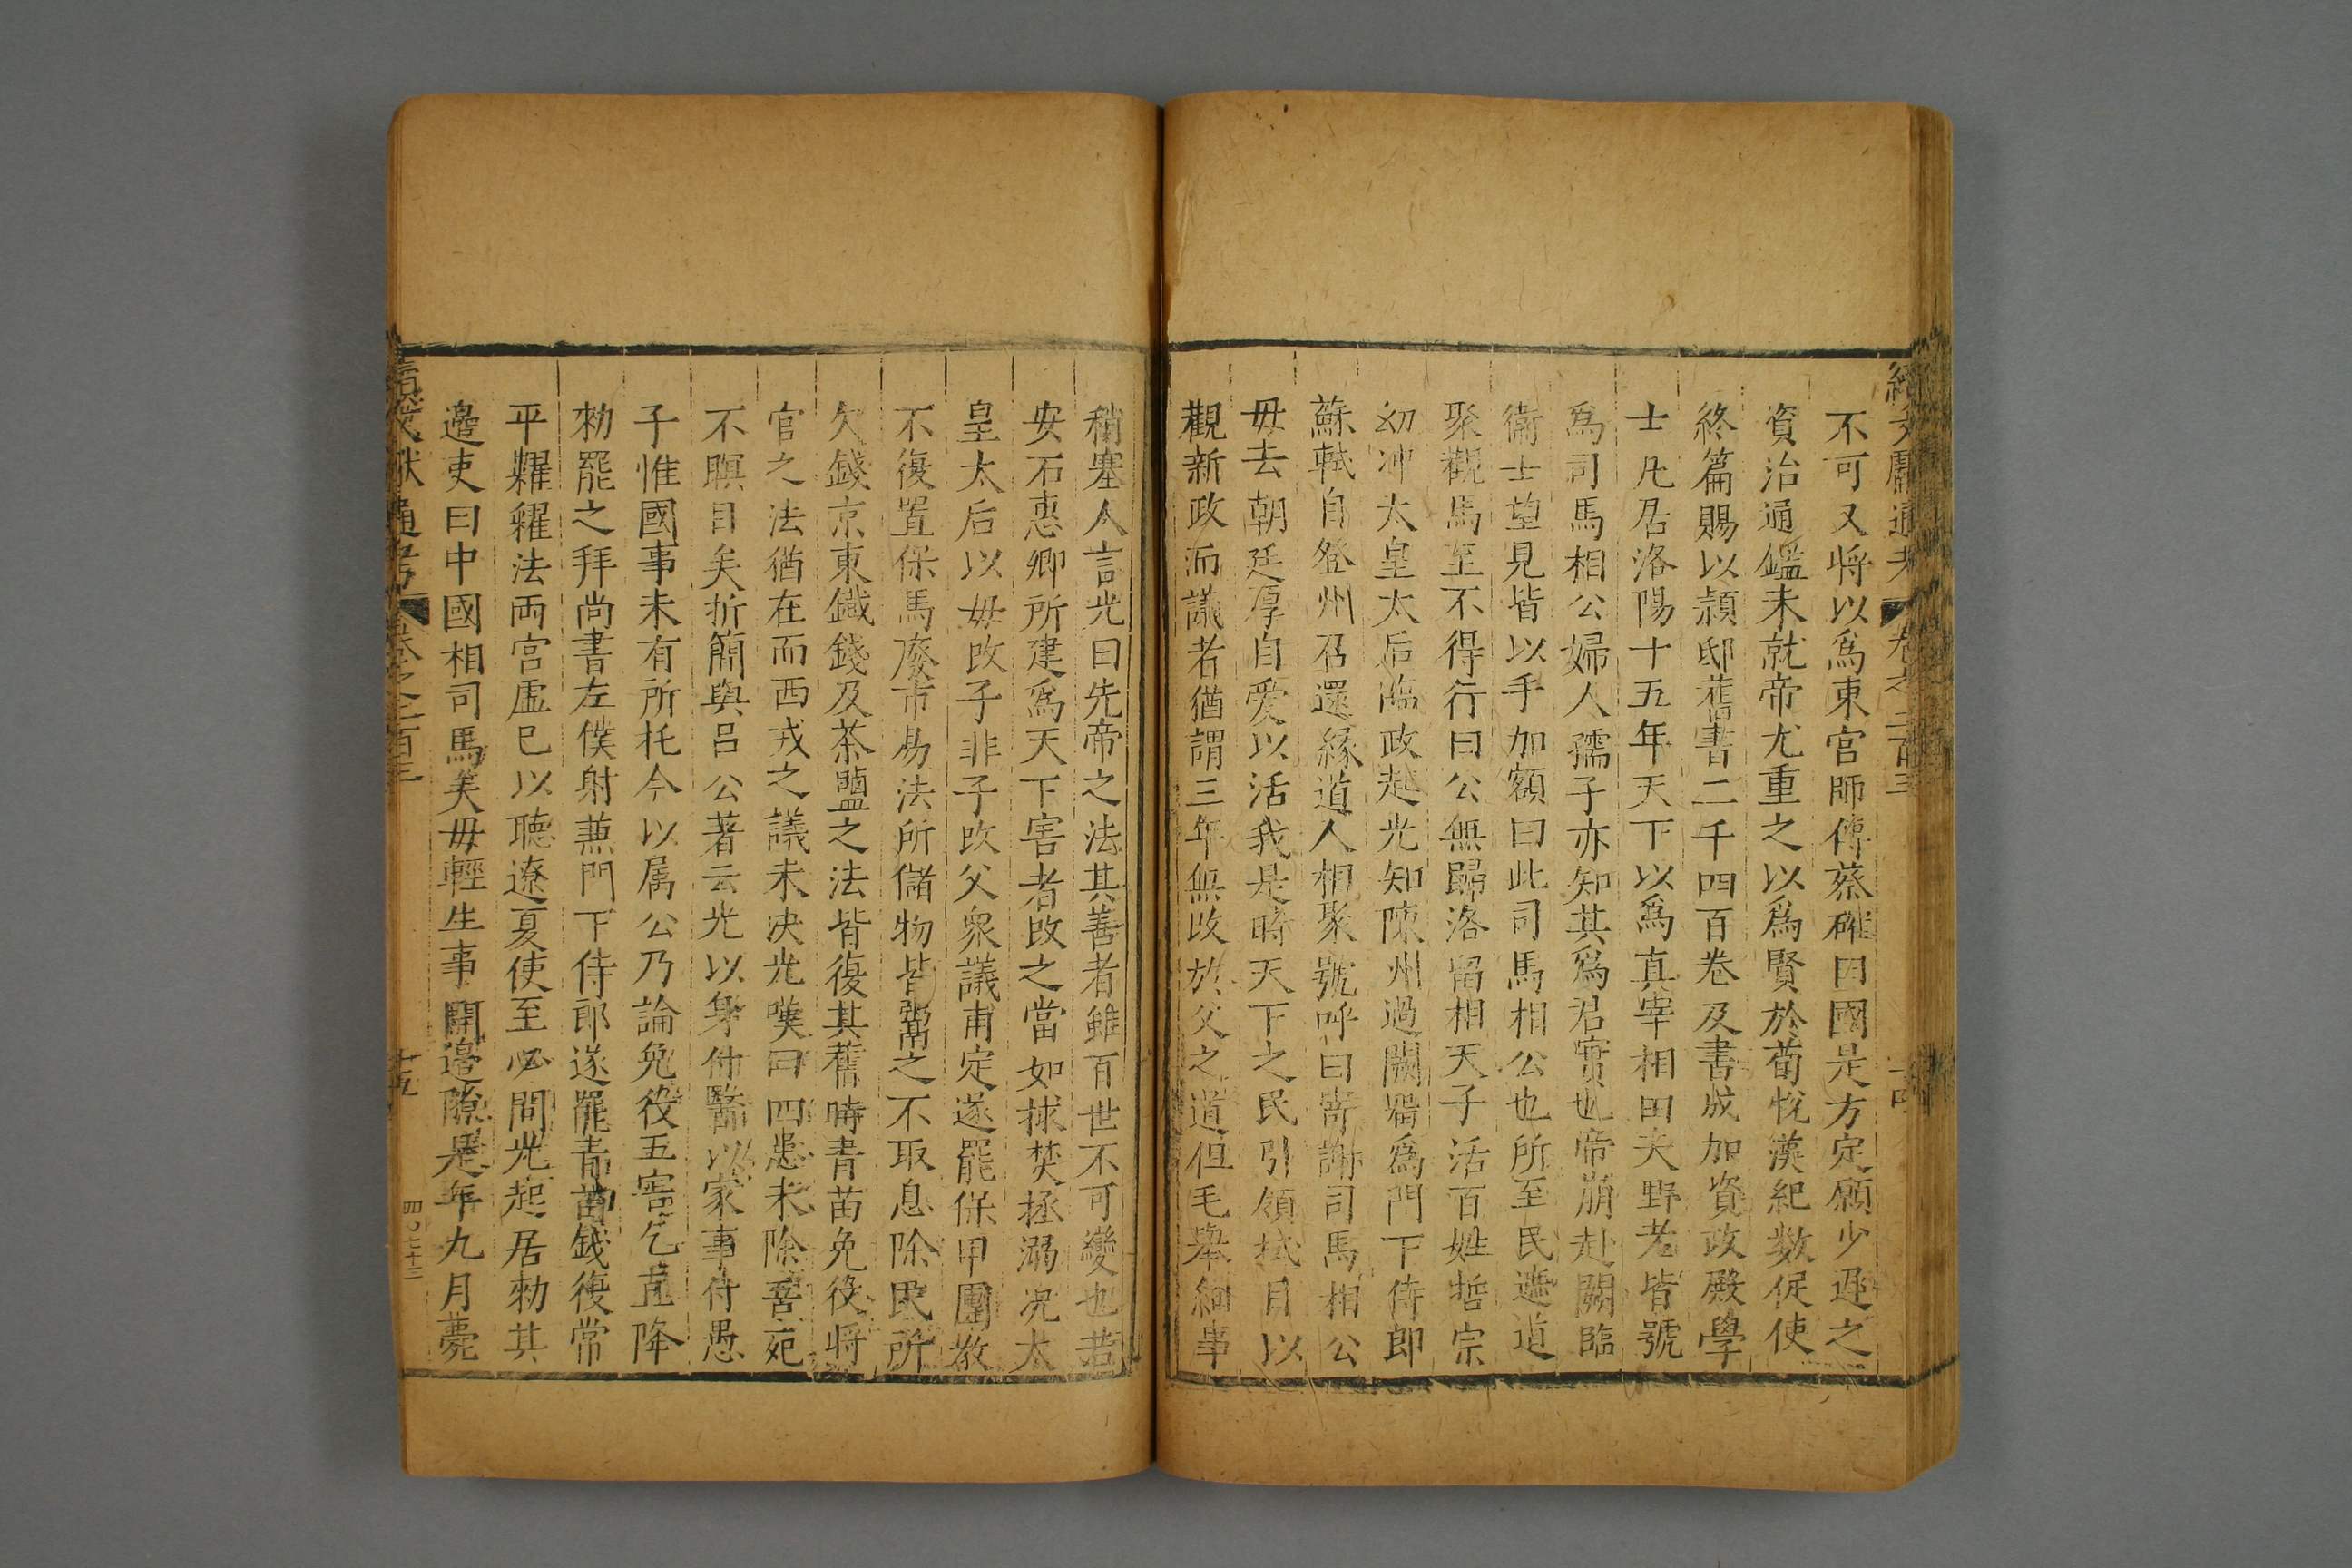 續文獻通考 卷之二百三 十四
不可又將以爲東宮師傅蔡確曰國是方定願少遲之
資治通鑑未就帝尤重之以爲賢於荀悅漢紀數促使
終篇賜以頴邸舊書二千四百卷及書成加資政殿學
士凡居洛陽十五年天下以爲真宰相田夫野老皆號
爲司馬相公婦人孺子亦知其爲君實也帝崩赴闕臨
衞士望見皆以手加額曰此司馬相公也所至民遮道
聚觀馬至不得行曰公無歸洛留相天子活百姓哲宗
幼冲太皇太后臨政起光知陳州過闕留爲門下侍郎
蘇軾自登州召還緣道人相聚號呼曰寄謝司馬相公
毋去朝廷厚自愛以活我是時天下之民引領拭目以
觀新政而議者猶謂三年無改於父之道但毛舉細事
稍塞人言光曰先帝之法其善者雖百世不可變也若
安石惠卿所建爲天下害者改之當如捄焚拯溺况太
皇太后以毋改子非子改父衆議甫定遂罷保甲團教
不復置保馬廢市易法所儲物皆鬻之不取息除民所
欠錢京東鐵錢及茶鹽之法皆復其舊時青苗免役將
官之法猶在而西戎之議未決光嘆曰四患未除吾死
不瞑目矣折簡與呂公著云光以身付醫以家事付愚
子惟國事未有所托今以屬公乃論免役五害乞直降
勑罷之拜尚書左僕射兼門下侍郎遂罷青苗錢復常
平糶糴法両宮虛已以聽遼夏使至必問光起居勑其
邉吏曰中國相司馬矣毋輕生事開邉隙是年九月薨
續文獻通考 卷之二百三 十五
四〇七十三